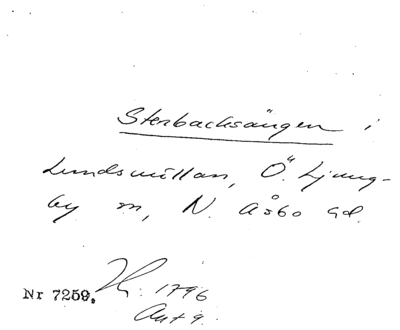 Sterbacksängen i
Lundsmöllan, Ö. Ljung-
by sn, N. Åsbo hd.
Nr 7259. 1796
Akt 9.